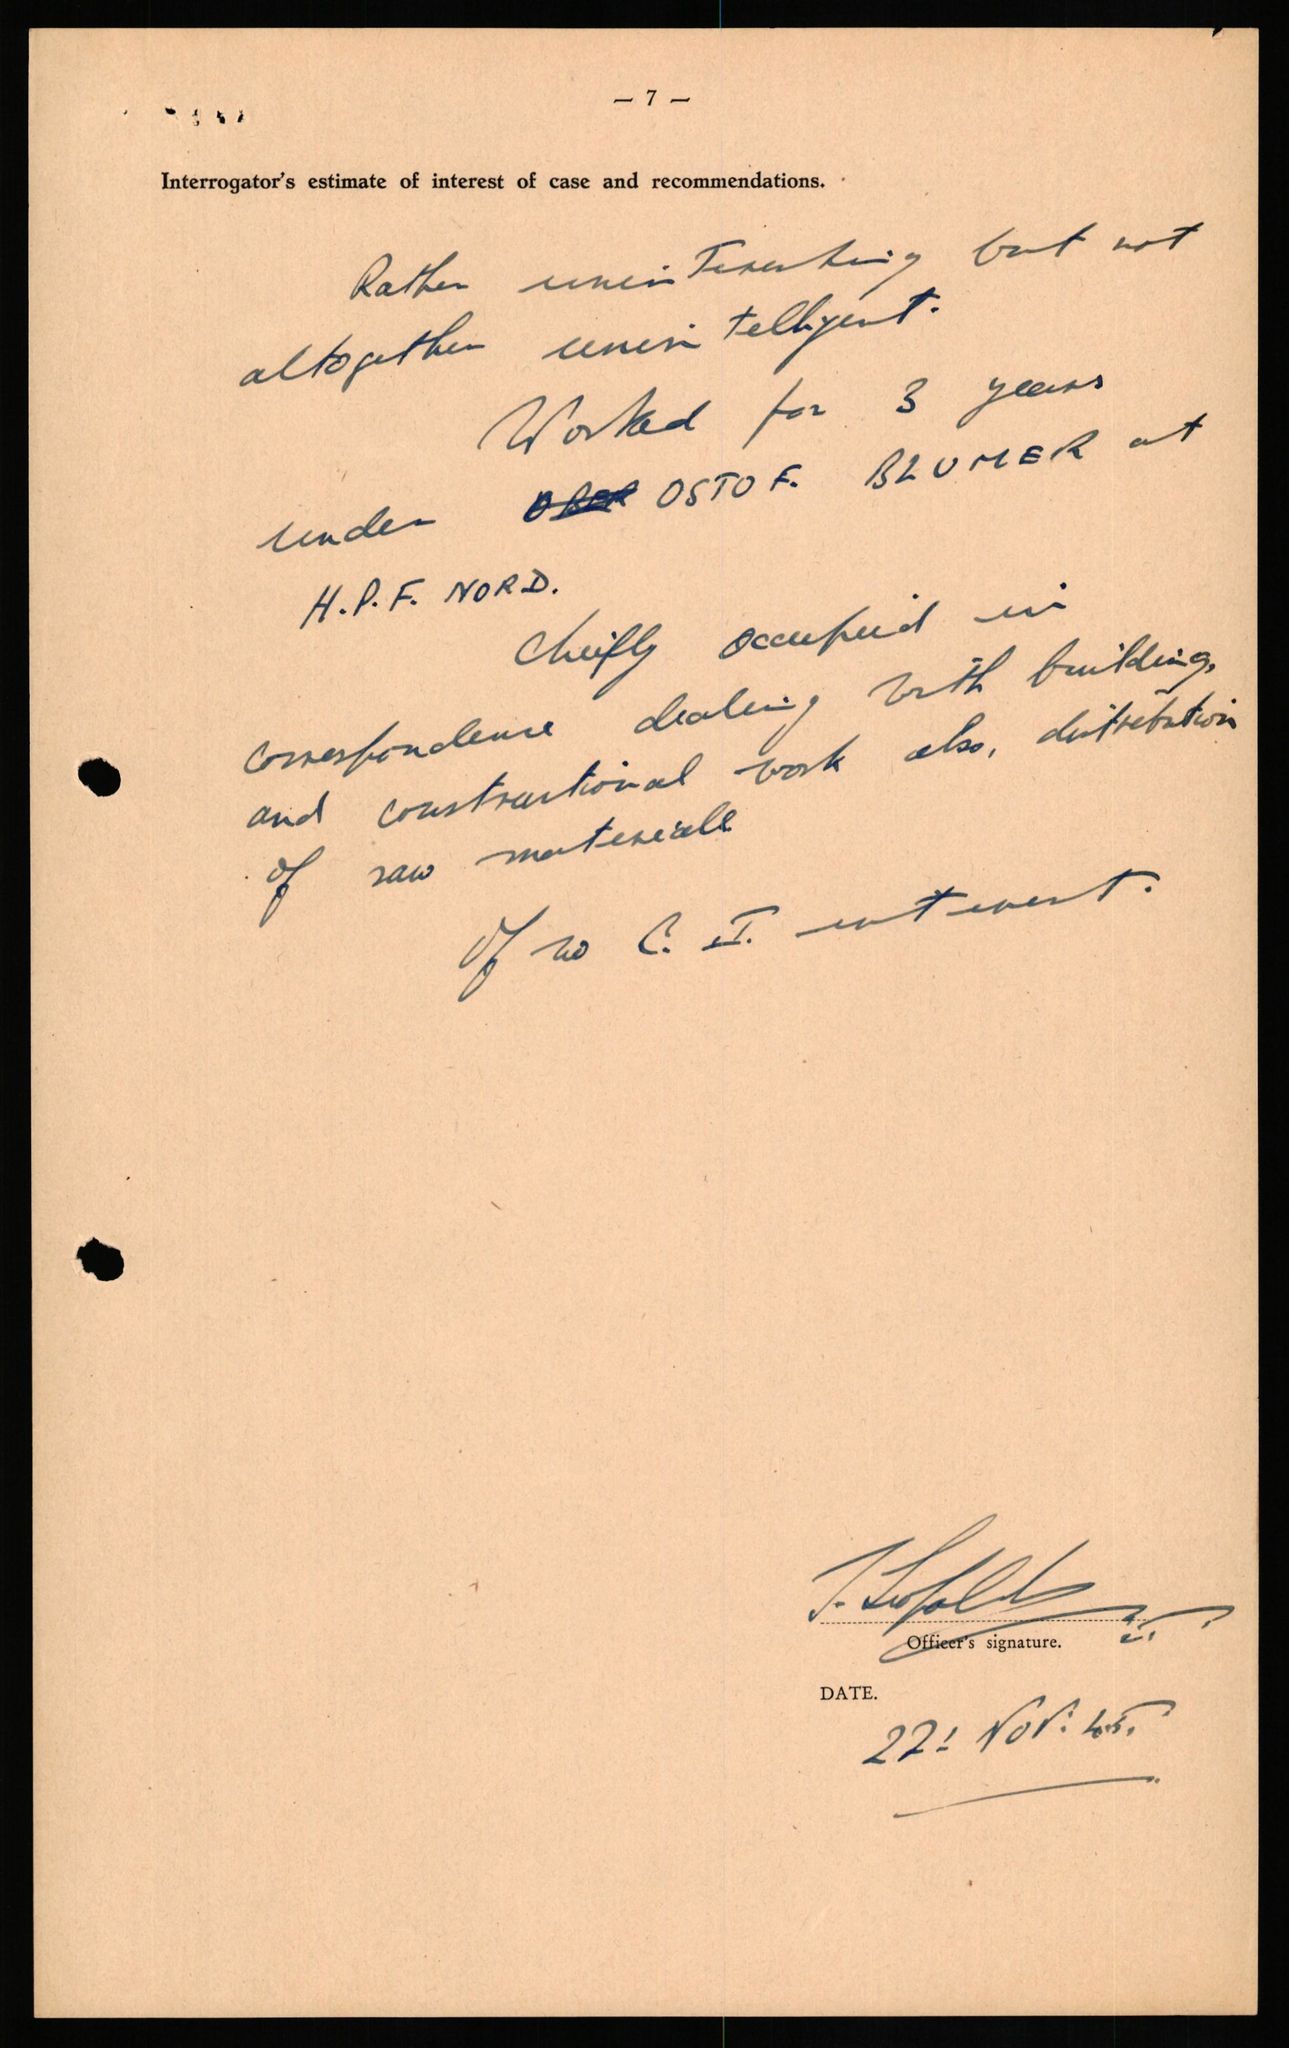 — 7 —
Interrogator's estimate of interest of case and recommendations.
Rather uninteresting but not
altogether unintelligent.
Worked for 3 years
under OSTOF. BLUMER at
H.P.F. NORD.
Chiefly occupied in
correspondence dealing with building,
and constructional work also, distribution
of raw materials
Of no C. I. interest.
Officer's signature.
DATE.
22. Nov. 45.